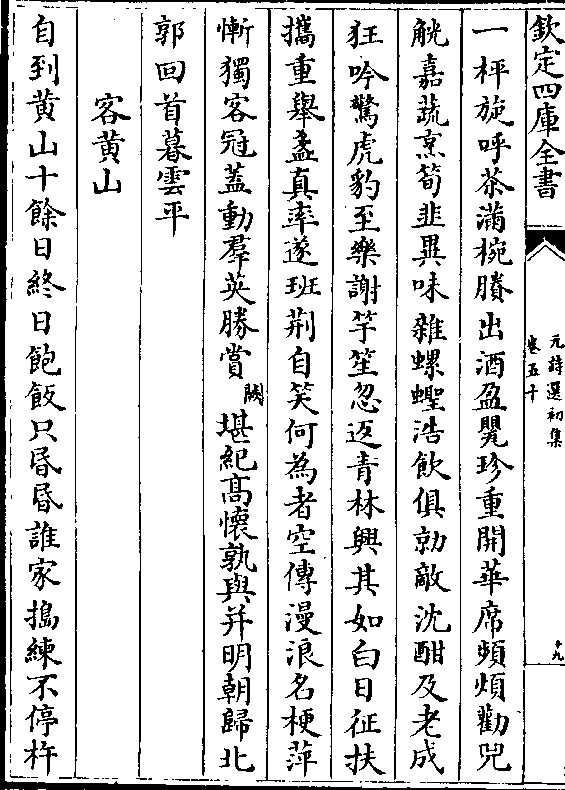 欽定四庫全書
元詩選初集
卷五十
十九
一枰旋呼茶滿椀賸出酒盈甖珍重開華席頻煩勸兕
觥嘉蔬烹筍韭異味雜螺蟶浩飲俱勍敵沈酣及老成
狂吟驚虎豹至樂謝竽笙忽返青林興其如白日征扶
攜重舉盞真率遂班荆自笑何為者空傳漫浪名梗萍
慚獨客冠蓋動羣英勝賞闕堪紀高懷孰與并明朝歸北
郭回首暮雲平
客黄山
自到黄山十餘日終日飽飯只昏昏誰家搗練不停杵